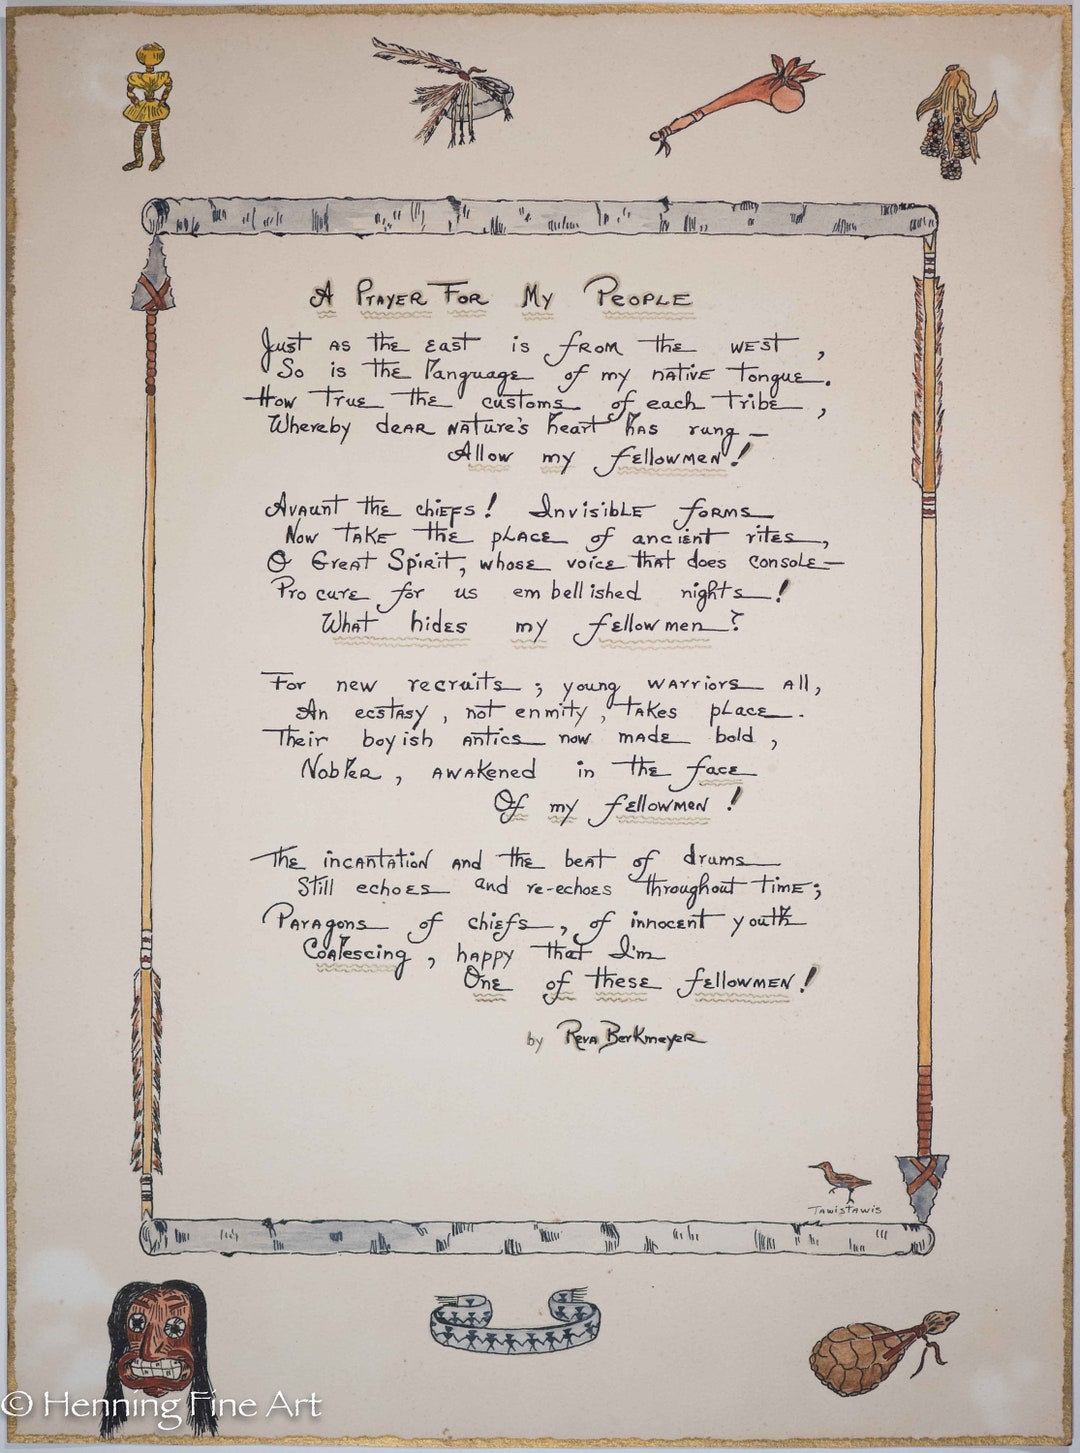 A Prayer For My People
Just as the east is from the west,
So is the language of my native tongue.
How true the customs of each tribe,
Whereby dear nature's heart has rung—
Allow my fellowmen!
Avaunt the chiefs! Invisible forms
Now take the place of ancient rites,
O Great Spirit, whose voice that does console—
Procure for us embellished nights!
What hides my fellowmen?
For new recruits; young warriors all,
An ecstasy, not enmity, takes place.
Their boyish antics now made bold,
Nobler, awakened in the face
Of my fellowmen!
The incantation and the beat of drums
Still echoes and re-echoes throughout time;
Paragons of chiefs, of innocent youth
Coalescing, happy that I'm
One of these fellowmen!
by Reva Berkmeyer
Tawistawis
© Henning Fine Art